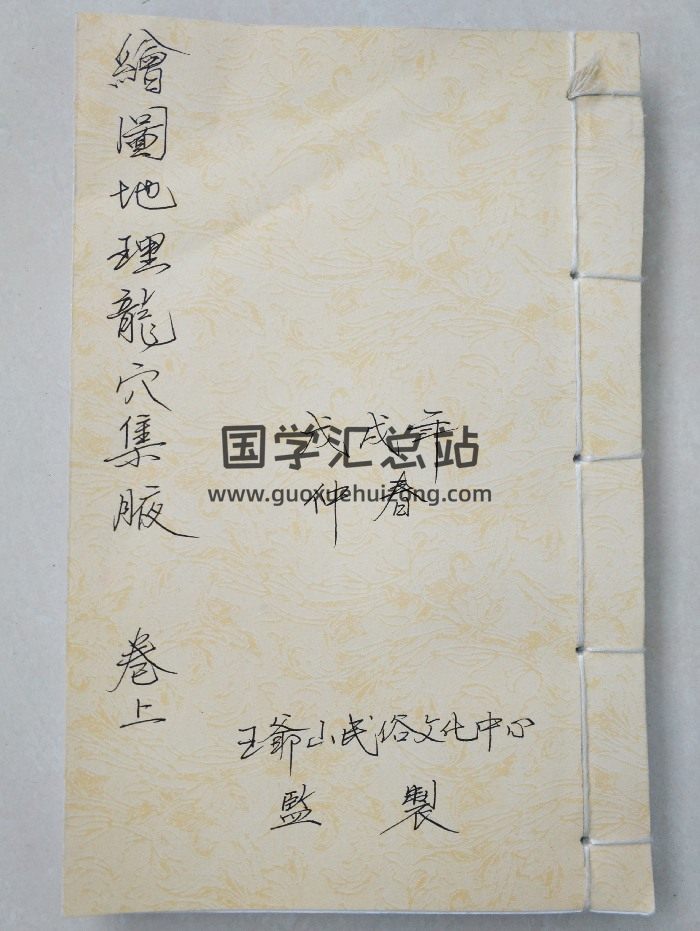 繪圖地理龍穴集腋
卷上
戊戌年
仲春
国学汇总站
www.guoxuehuizong.com
王爺山民俗文化中心
監製